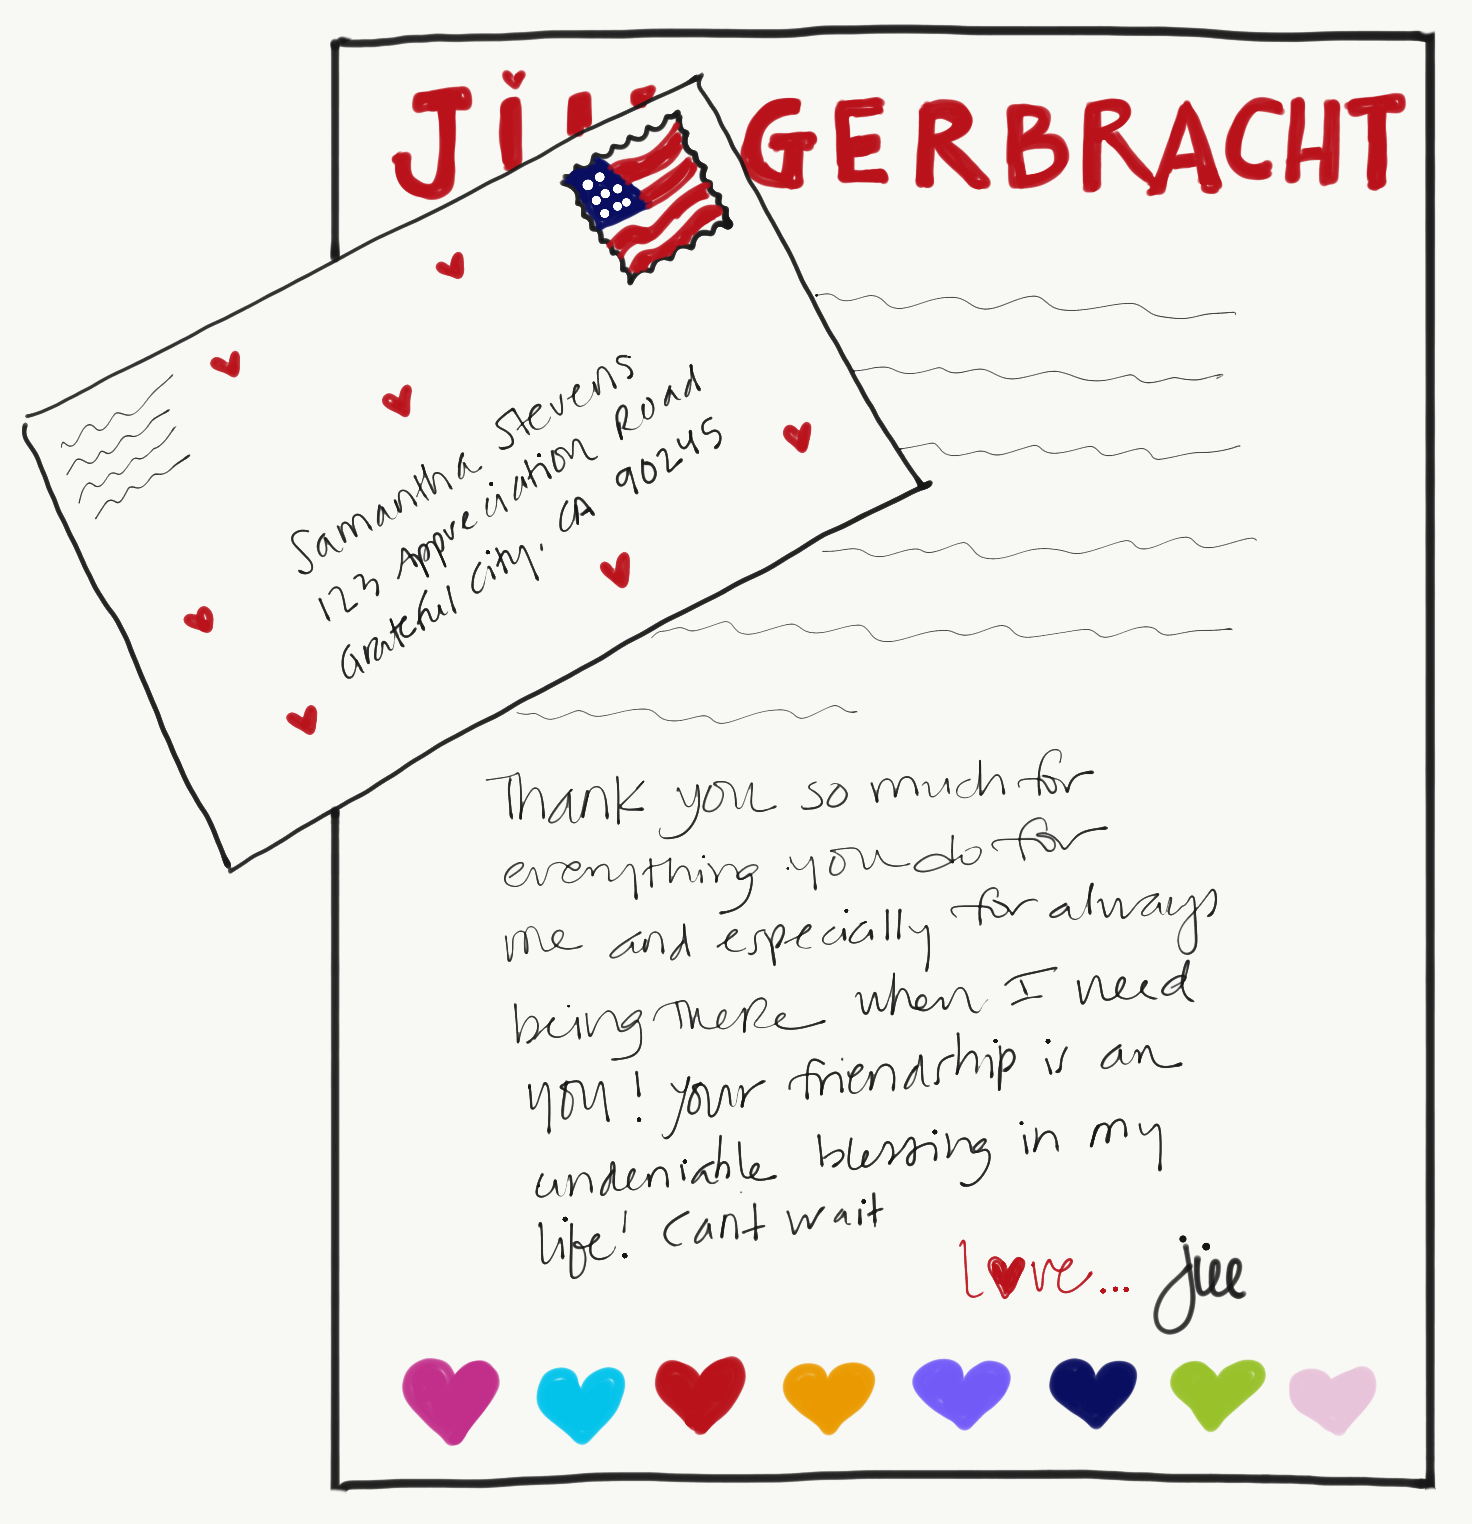 Jill GERBRACHT
Samantha Stevens
123 Appreciation Road
Grateful City, CA 90245
Thank you so much for
everything you do for
me and especially for always
being there when I need
you! your friendship is an
undeniable blessing in my
life! Cant wait
love... jill